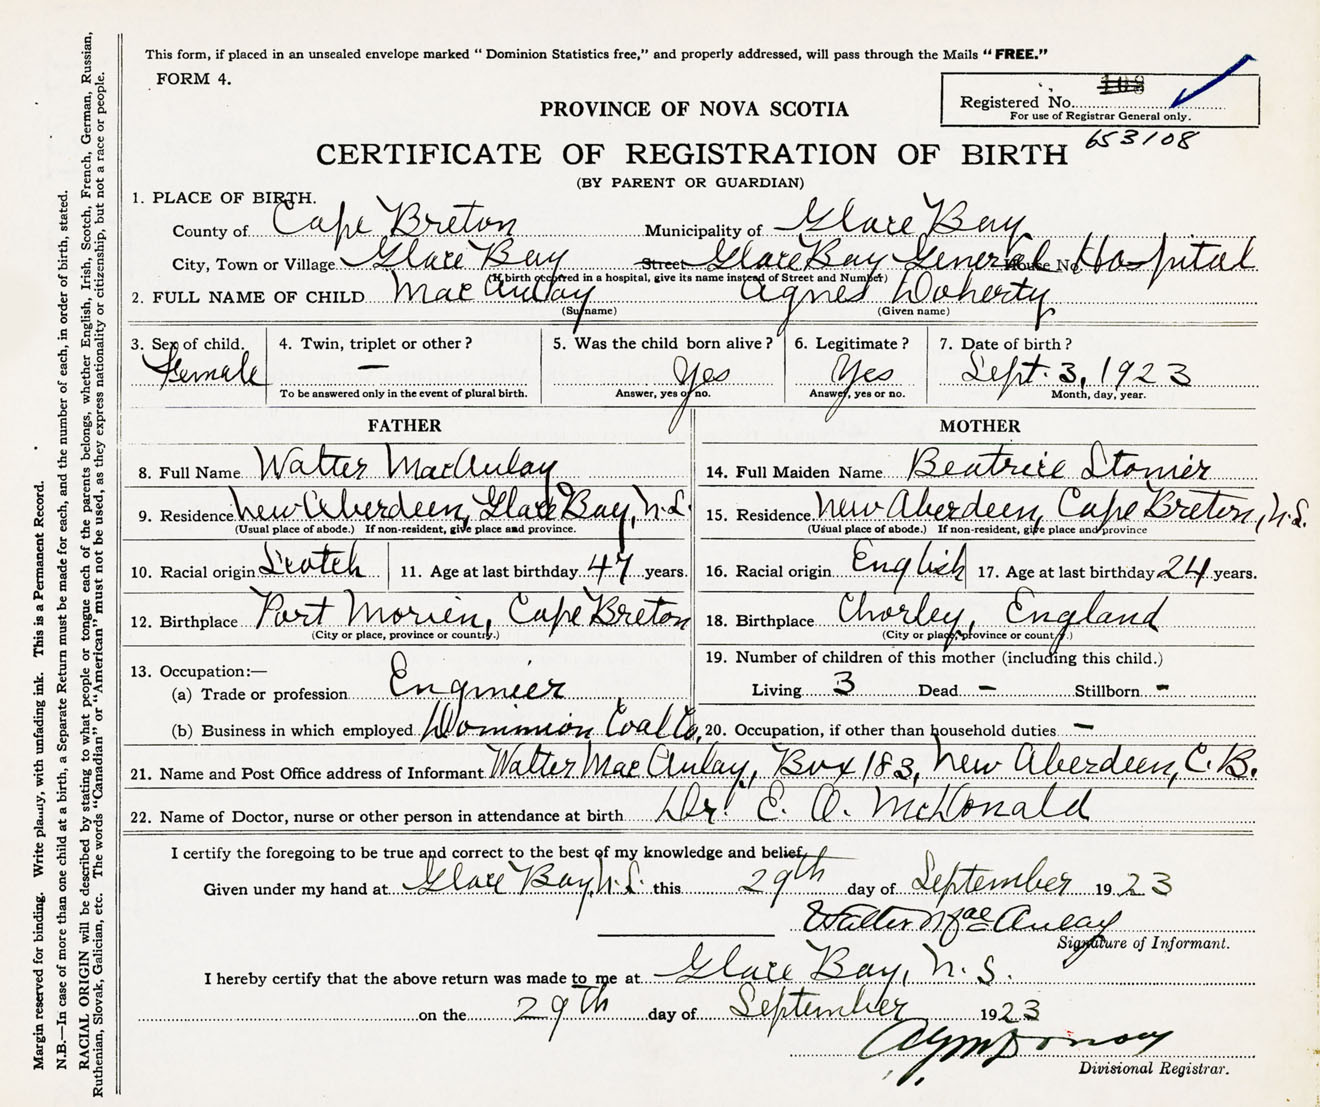 This form, if placed in an unsealed envelope marked "Dominion Statistics free," and properly addressed, will pass through the Mails "FREE."
FORM 4.
Registered No.
For use of Registrar General only.
653108
PROVINCE OF NOVA SCOTIA
CERTIFICATE OF REGISTRATION OF BIRTH
(BY PARENT OR GUARDIAN)
1. PLACE OF BIRTH.
County of Cape Breton Municipality of Glace Bay
City, Town or Village Glace Bay Street Glace Bay General House No. Hospital
(If birth occurred in a hospital, give its name instead of Street and Number)
2. FULL NAME OF CHILD MacAulay Agnes Doherty
(Surname) (Given name)
3. Sex of child. 4. Twin, triplet or other? 5. Was the child born alive? 6. Legitimate? 7. Date of birth?
Female — Yes Yes Sept. 3, 1923
To be answered only in the event of plural birth. Answer, yes or no. Answer, yes or no. Month, day, year.
FATHER
8. Full Name Walter MacAulay
9. Residence New Aberdeen, Glace Bay, N.S.
(Usual place of abode.) If non-resident, give place and province.
10. Racial origin Scotch 11. Age at last birthday 47 years.
12. Birthplace Port Morien, Cape Breton
(City or place, province or country.)
13. Occupation:—
(a) Trade or profession Engineer
(b) Business in which employed Dominion Coal Co,
MOTHER
14. Full Maiden Name Beatrice Stonier
15. Residence New Aberdeen, Cape Breton, N.S.
(Usual place of abode.) If non-resident, give place and province
16. Racial origin English 17. Age at last birthday 24 years.
18. Birthplace Chorley, England
(City or place, province or country.)
19. Number of children of this mother (including this child.)
Living 3 Dead - Stillborn -
20. Occupation, if other than household duties —
21. Name and Post Office address of Informant Walter MacAulay, Box 183, New Aberdeen, C.B.
22. Name of Doctor, nurse or other person in attendance at birth Dr. E. O. McDonald
I certify the foregoing to be true and correct to the best of my knowledge and belief.
Given under my hand at Glace Bay, N.S. this 29th day of September 1923
Walter MacAulay
Signature of Informant.
I hereby certify that the above return was made to me at Glace Bay, N.S.
on the 29th day of September 1923
Divisional Registrar.
Margin reserved for binding. Write plainly, with unfading ink. This is a Permanent Record.
N.B.—In case of more than one child at a birth, a Separate Return must be made for each, and the number of each, in order of birth, stated.
RACIAL ORIGIN will be described by stating to what people or tongue each of the parents belongs, whether English, Irish, Scotch, French, German, Russian,
Ruthenian, Slovak, Galician, etc. The words "Canadian" or "American" must not be used, as they express nationality or citizenship, but not a race or people.